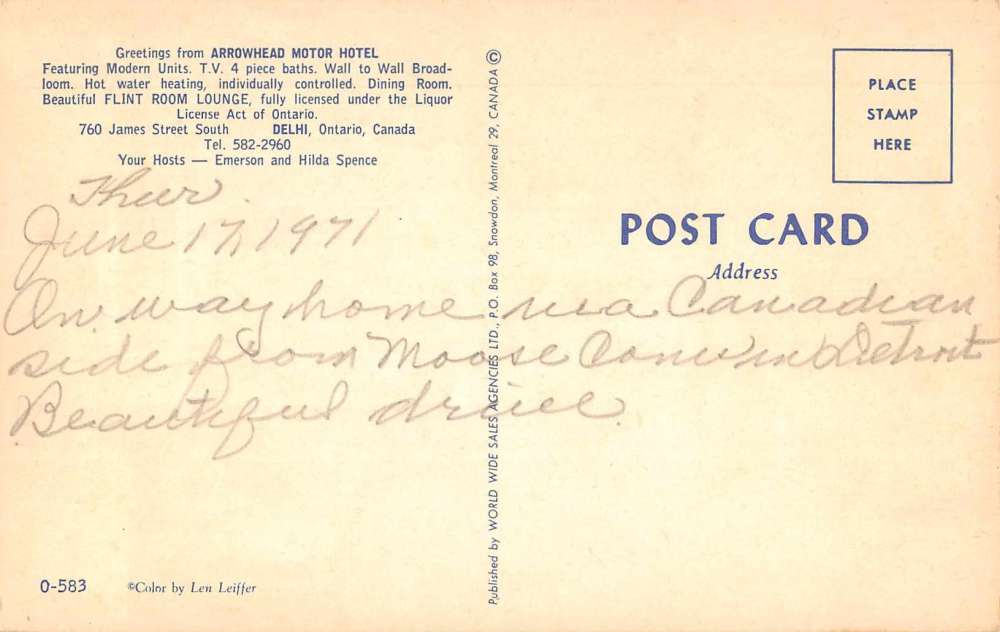 Greetings from ARROWHEAD MOTOR HOTEL
Featuring Modern Units. T.V. 4 piece baths. Wall to Wall Broad-
loom. Hot water heating, individually controlled. Dining Room.
Beautiful FLINT ROOM LOUNGE, fully licensed under the Liquor
License Act of Ontario.
760 James Street South DELHI, Ontario, Canada
Tel. 582-2960
Your Hosts — Emerson and Hilda Spence
Thur.
June 17, 1971
On way home via Canadian
side from Moose Conv in Detroit
Beautiful drive.
O-583 ©Color by Len Leiffer
Published by WORLD WIDE SALES AGENCIES LTD., P.O. Box 98, Snowdon, Montreal 29, CANADA ©
PLACE
STAMP
HERE
POST CARD
Address